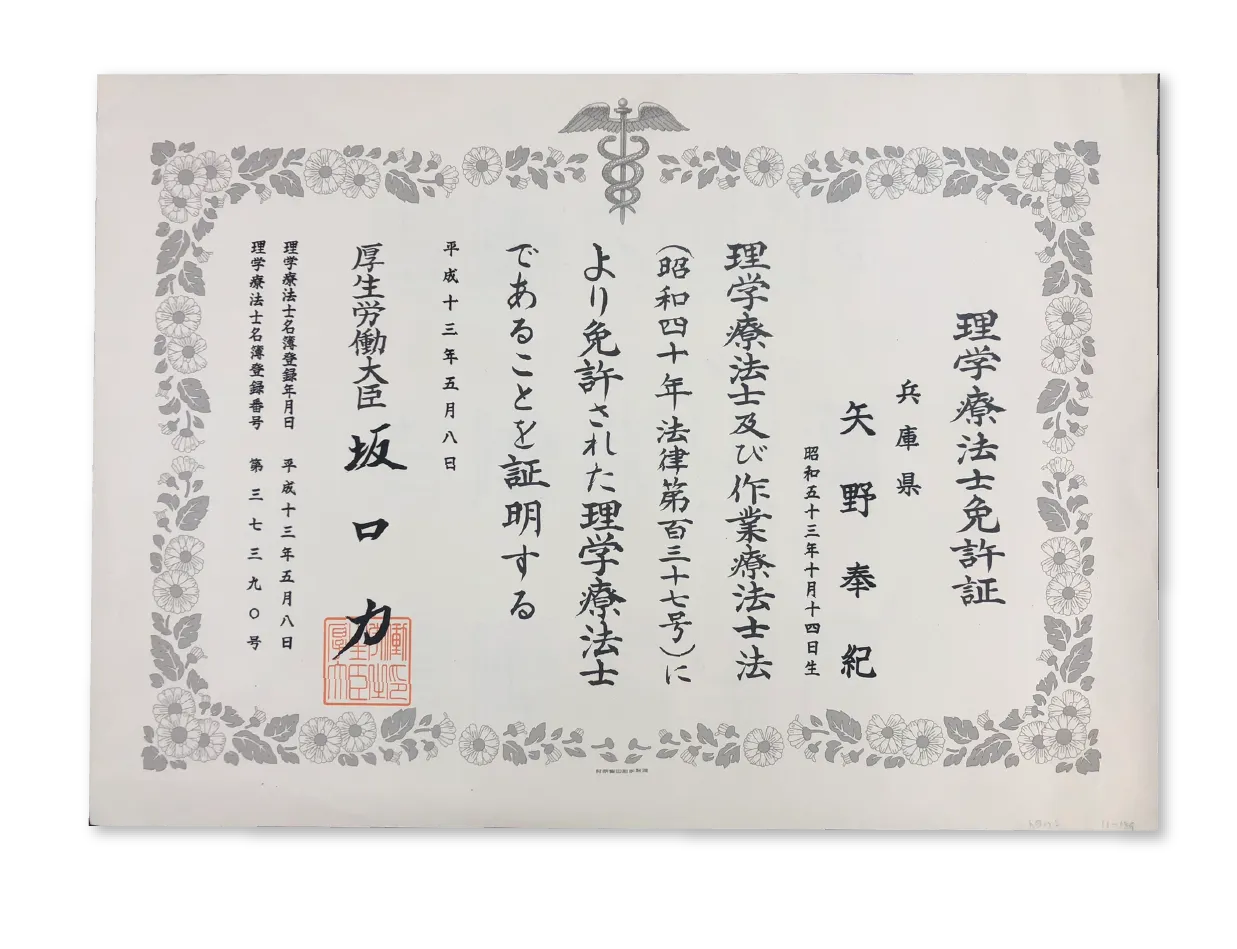 理学療法士免許証
兵庫県
矢野奉紀
昭和五十三年十月十四日生
理学療法士及び作業療法士法
(昭和四十年法律第百三十七号)に
より免許された理学療法士
であることを証明する
平成十三年五月八日
厚生労働大臣 坂口力
理学療法士名簿登録年月日 平成十三年五月八日
理学療法士名簿登録番号 第三七三九〇号